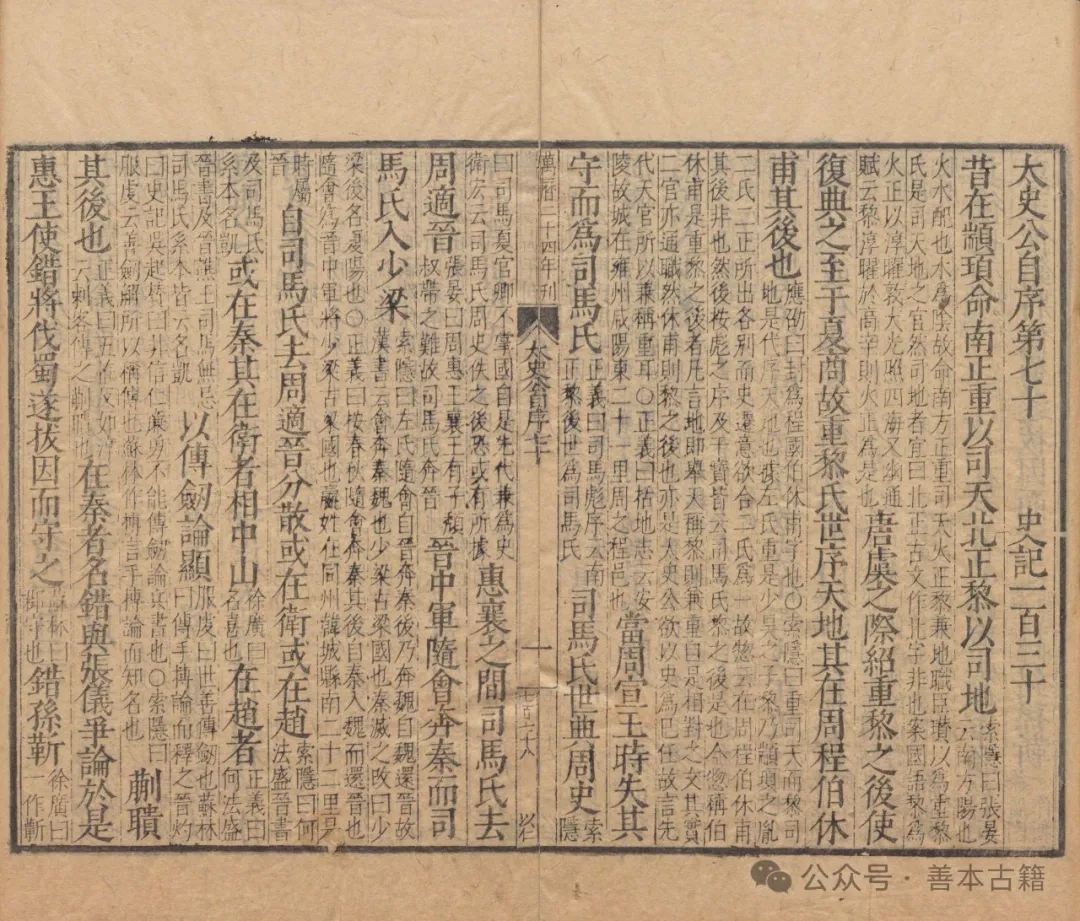 太史公自序第七十　史記一百三十
昔在顓頊命南正重以司天北正黎以司地索隱曰張晏云南方陽也
火水配也水為陰故命南方正重司天火正黎兼地職臣瓚以為重黎
氏是司天地之官然司地者宜曰北正古文作北字非也案國語黎為
火正以淳曜敦大光照四海又幽通賦云黎淳曜於高辛則火正為是也唐虞之際紹重黎之後使
復典之至于夏商故重黎氏世序天地其在周程伯休
甫其後也應劭曰封為程國伯休甫字也○索隱曰重司天而黎司地是代序天地也據左氏重是少昊之子黎乃顓頊之胤
二氏二正所出各別而史遷意欲合二氏為一故揔云在周程伯休甫
其後非也然後桉彪之序及干寶皆云司馬氏黎之後是也今揔稱伯
休甫是重黎之後者凡言地即舉天稱黎則兼重自是相對之文其實
二官亦通職然休甫則黎之後也亦是太史公欲以史為己任故言先
代天官所以兼稱重耳○正義曰括地志云安陵故城在雍州咸陽東二十一里周之程邑也當周宣王時失其
守而為司馬氏正義曰司馬彪序云南正黎後世為司馬氏司馬氏世典周史索隱
萬曆二十四年刊
太史公自序七十
一
曰司馬夏官卿不掌國自是先代兼為史衛宏云司馬氏周史佚之後恐或有所據惠襄之間司馬氏去
周適晉張晏曰周惠王襄王有子頹叔帶之難故司馬氏奔晉晉中軍隨會奔秦而司
馬氏入少梁索隱曰左氏隨會自晉奔秦後乃奔魏自魏還晉故漢書云會奔秦魏也少梁古梁國也秦滅之改曰少
梁後名夏陽也○正義曰桉春秋隨會奔秦其後自秦入魏而還晉也
隨會為晉中軍將少梁古梁國也嬴姓在同州韓城縣南二十二里是
時屬晉自司馬氏去周適晉分散或在衛或在趙索隱曰何法盛晉書
及司馬氏系本名凱或在秦其在衛者相中山徐廣曰名喜也在趙者正義曰何法盛
晉書及晉譙王司馬無忌司馬氏系本皆云名凱以傳劒論顯服虔曰世善傳劒也蘇林曰傳手搏論而釋之晉灼
曰史記吳起贊曰非信仁廉勇不能傳劒論兵書也○索隱曰服虔云善劒解所以稱傳也蘇林作搏言手搏論而知名也蒯聵
其後也正義曰五怪反如淳云刺客傳之蒯聵也在秦者名錯與張儀爭論於是
惠王使錯將伐蜀遂拔因而守之蘇林曰郡守也錯孫靳徐廣曰一作蘄
公众号·善本古籍